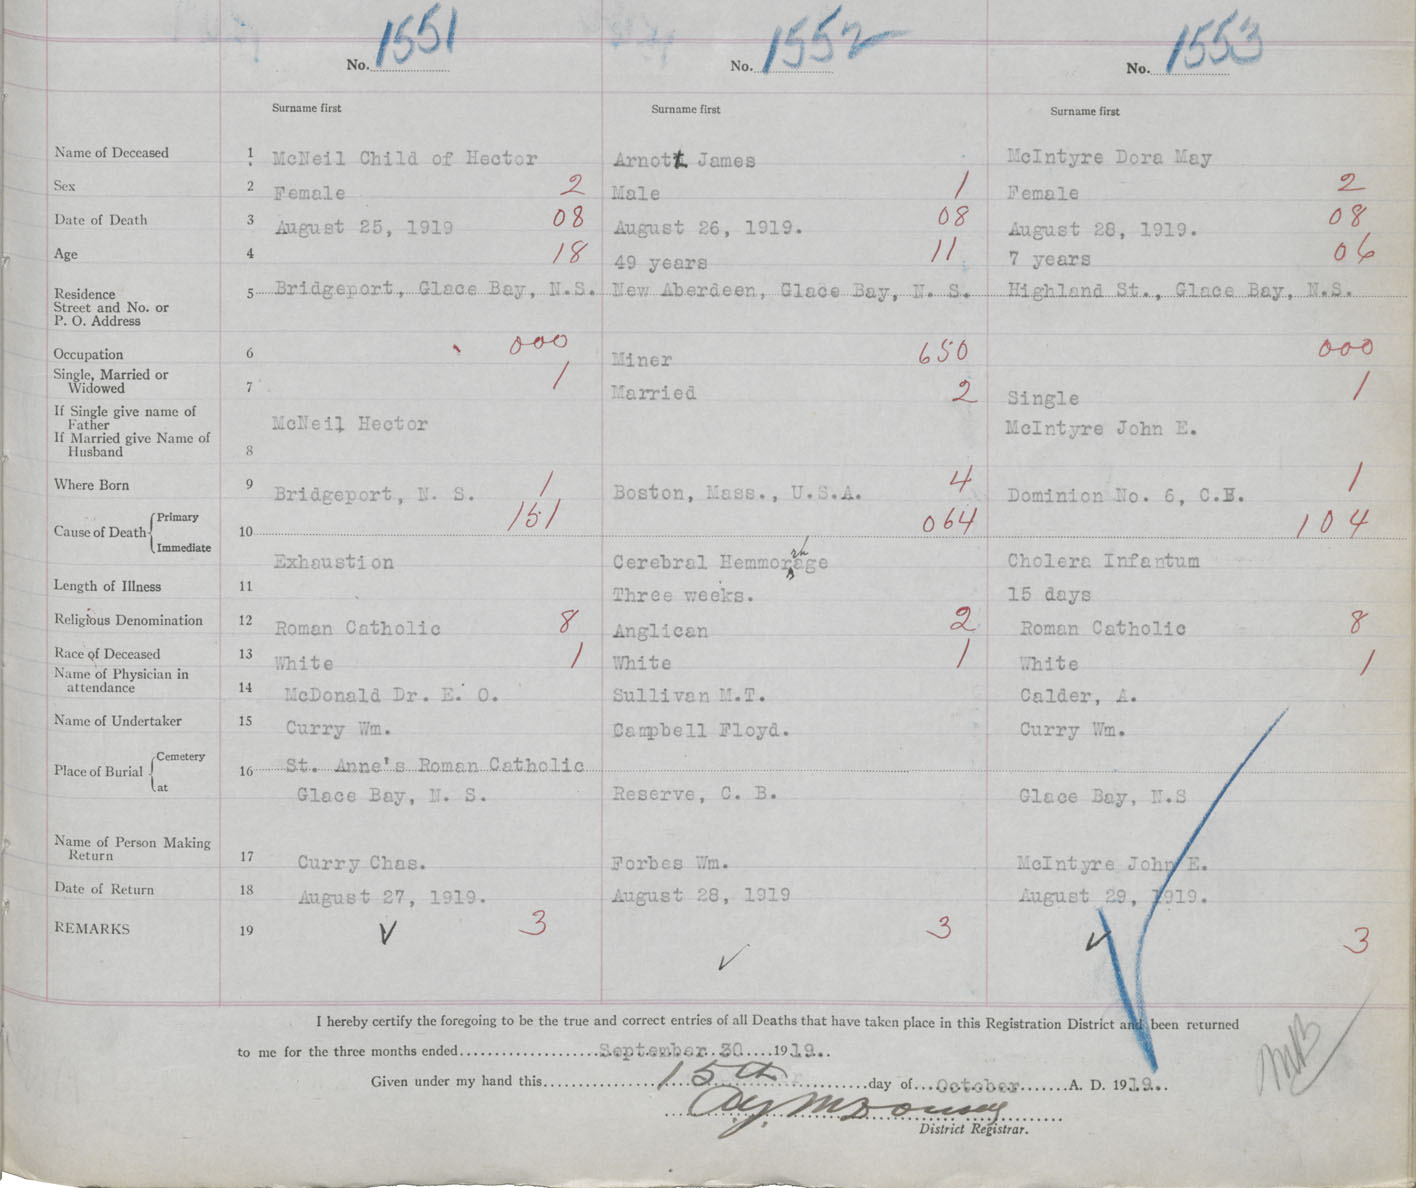 No. 1551 No. 1552 No. 1553
Surname first Surname first Surname first
Name of Deceased 1 McNeil Child of Hector Arnott James McIntyre Dora May
Sex 2 Female 2 Male 1 Female 2
Date of Death 3 August 25, 1919 08 August 26, 1919. 08 August 28, 1919. 08
Age 4 18 49 years 11 7 years 06
Residence
Street and No. or
P. O. Address
5 Bridgeport, Glace Bay, N.S. New Aberdeen, Glace Bay, N. S. Highland St., Glace Bay, N.S.
Occupation 6 000 Miner 650 000
Single, Married or
Widowed 7 1 Married 2 Single 1
If Single give name of
Father McNeil Hector McIntyre John E.
If Married give Name of
Husband 8
Where Born 9 Bridgeport, N. S. 1 Boston, Mass., U.S.A. 4 Dominion No. 6, C.B. 1
Cause of Death Primary 10 151 064 104
Immediate Exhaustion Cerebral Hemmorrhage Cholera Infantum
Length of Illness 11 Three weeks. 15 days
Religious Denomination 12 Roman Catholic 8 Anglican 2 Roman Catholic 8
Race of Deceased 13 White 1 White 1 White 1
Name of Physician in
attendance 14 McDonald Dr. E. O. Sullivan M.T. Calder, A.
Name of Undertaker 15 Curry Wm. Campbell Floyd. Curry Wm.
Place of Burial Cemetery 16 St. Anne's Roman Catholic
at Glace Bay, N. S. Reserve, C. B. Glace Bay, N.S
Name of Person Making
Return 17 Curry Chas. Forbes Wm. McIntyre John E.
Date of Return 18 August 27, 1919. August 28, 1919 August 29, 1919.
REMARKS 19 3 3 3
I hereby certify the foregoing to be the true and correct entries of all Deaths that have taken place in this Registration District and been returned
to me for the three months ended September 30 1919.
Given under my hand this 15th day of October A. D. 1919.
District Registrar.